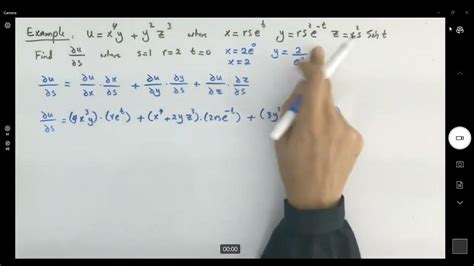 Camera
Example: u = x⁴y + y²z³ where x = rse^t y = rs²e^-t z = r²s sin t
Find ∂u/∂s where s=1 r=2 t=0 x = 2e⁰ y = 2/e⁰
x = 2
∂u/∂s = ∂u/∂x · ∂x/∂s + ∂u/∂y · ∂y/∂s + ∂u/∂z · ∂z/∂s
∂u/∂s = (4x³y) · (re^t) + (x⁴ + 2yz³) · (2rse^-t) + (3y²
00:00